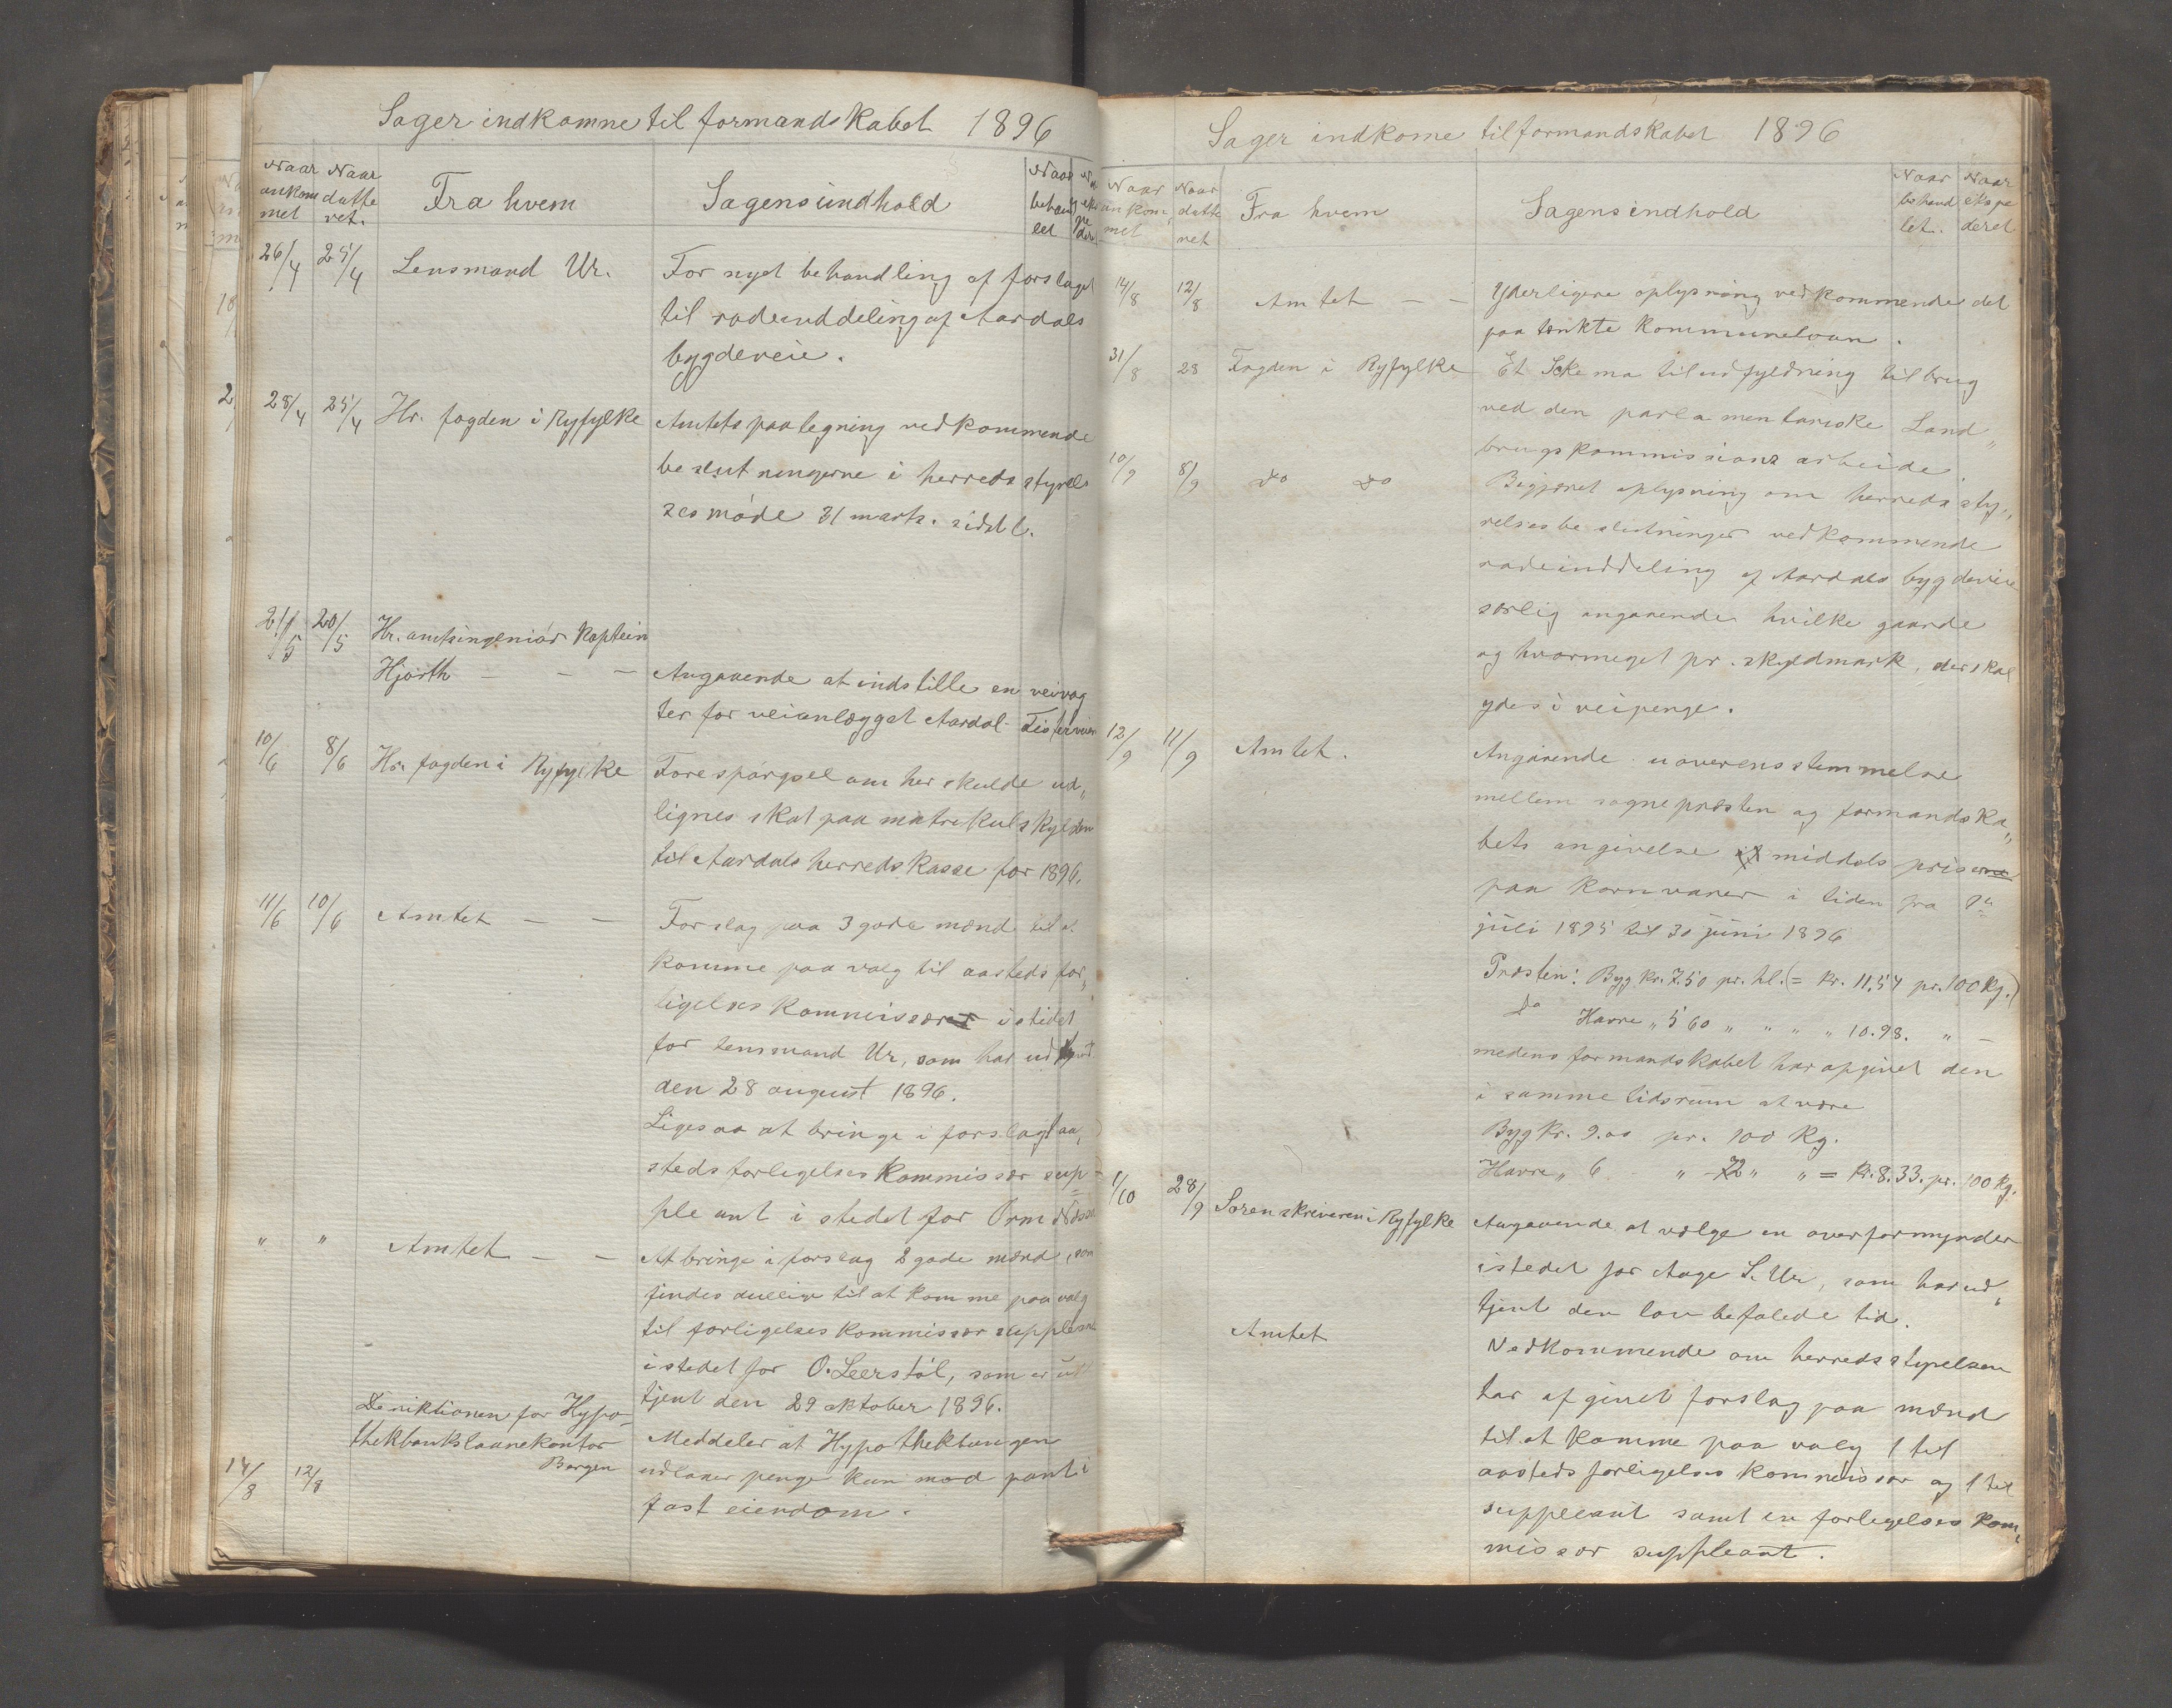 Sager indkomne til formandskabet 1896
Naar ankommet
Naar datteret.
Fra hvem
Sagens indhold
Naar behandlet
26/4 25/4 Lensmand Ur. For nyet behandling af forslaget
til rodeinddeling af Aardals
bygdeveie.
28/4 25/4 Hr. fogden i Ryfylke Amtets paategning vedkommende
beslutningerne i herredsstyrel
ses møde 31 marts. sidstl.
21/5 20/5 Hr. amtsingeniør Kaptein
Hjorth — — — Angaaende at indstille en veivog
ter for veianlægget Aardal-Tisterveien
10/6 8/6 Hr. fogden i Ryfylke Forespørgsel om her skulde ud„
lignes skat paa matrikulskylden
til Aardals herredskasse for 1896.
11/6 10/6 Amtet — — Forslag paa 3 gode mænd til at
komme paa valg til aasteds for„
ligelses kommissær istedet
for lensmand Ur, som har udtjent
den 28 august 1896.
Ligesaa at bringe i forslag aa„
steds forligelses kommissær sup-
pleant i stedet for Orm
" " Amtet — — At bringe i forslag 2 gode mænd, som
findes villig til at komme paa valg
til forligelses kommissær suppleant
istedet for O. Leerstøl, som er ud
tjent den 29 oktober 1896.
Direktionen for Hypo-
thekbankslaanekontor
Bergen
14/8 12/8 Meddeler at Hypothekbangen
udlaaner penge kun mod pant i
fast eiendom.
Sager indkome til formandskabet 1896
Naar ankommet
Naar datteret
Fra hvem
Sagens indhold
Naar behandlet.
Naar ekspederet
14/8 12/8 Amtet — — Yderligere oplysning vedkommende det
paa tænkte kommunelaan.
31/8 28 Fogden i Ryfylke Et Skema til udfyldning til brug
ved den parlamentariske Land„
brugskommissions arbeide.
10/9 8/9 do do Begjæret oplysning om herredssty„
relsesbeslutninger vedkommende
rodeinddeling af Aardals bygdeveie
særlig angaaende hvilke gaarde
og hvormeget pr. skyldmark, der skal
ydes i veipenge.
12/9 11/9 Amtet. Angaaende uoverensstemmelse
mellem sognepræsten og formandska„
bets angivelse af middels priserne
paa kornvarer i tiden fra 1ste
juli 1895 til 30 juni 1896
Præsten: Byg kr. 7.50 pr. hl. (= kr. 11.54 pr. 100 kg.)
do Havre „ 5 60 „ „ „ „ 10.98. „ —
medens formandskabet har opgivet den
i samme tidsrum at være
Byg kr. 9.00 pr. 100 kg.
Havre „ 6 - „ - 72 „ „ = kr. 8.33. pr. 100 kg.
1/10 28/9 Sorenskriveren i Ryfylke Angaaende at vælge en overformynder
istedet for Aage S. Ur, som har ud„
tjent den lov befalede tid.
Amtet Vedkommende om herredsstyrelsen
har afgivet forslag paa mænd
til at komme paa valg 1 til
aasteds forligelses kommissær og 1 til
suppleant samt en forligelses kom„
missær suppleant.